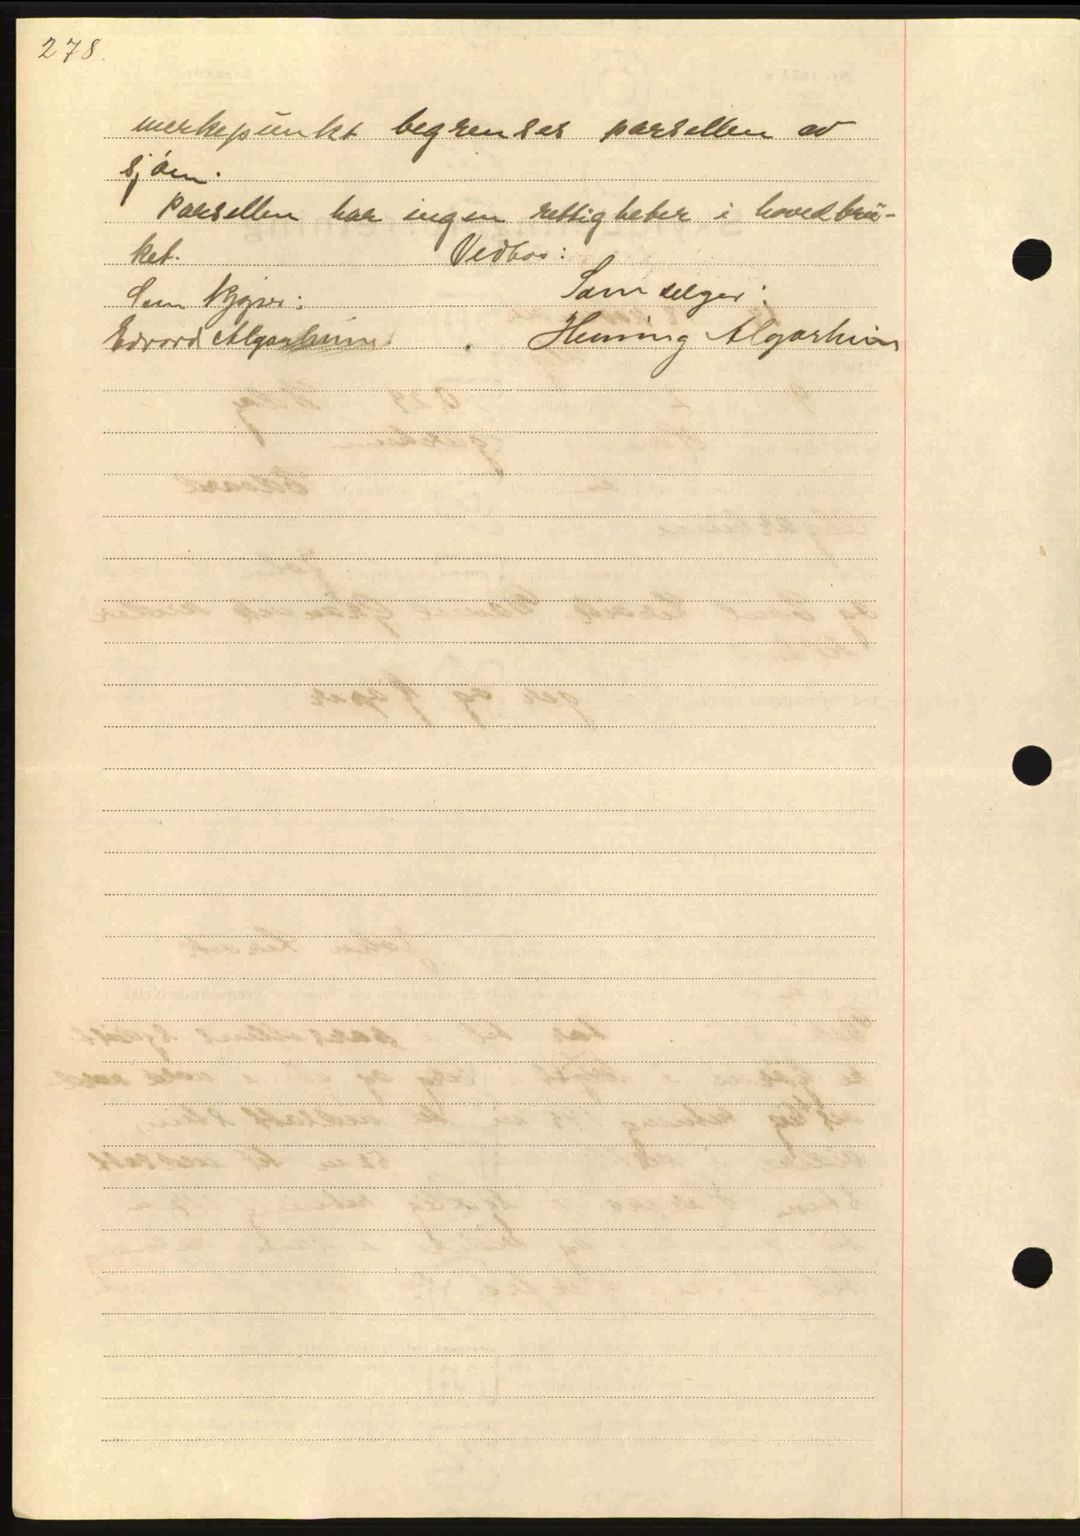 278.
merkepunkt begrenses parsellen av
sjøen.
Parsellen har ingen rettigheter i hovedbru-
ket. Vedtas:
Som kjøper: Som selger:
Edvard Algarheim Heming Algarheim